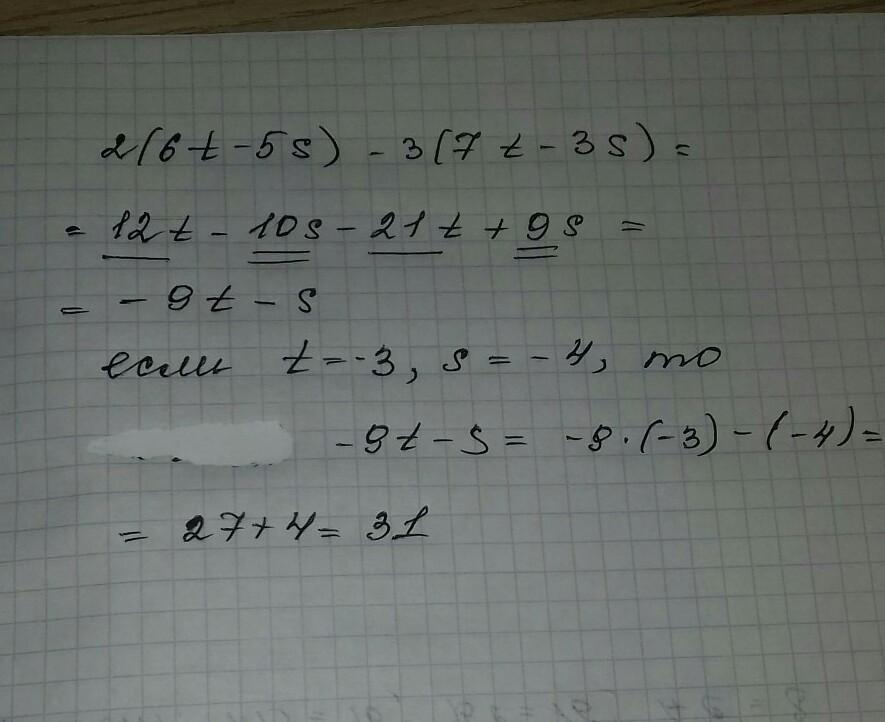 2(6t-5s) - 3(7t-3s) =
= 12t - 10s - 21t + 9s =
= - 9t - s
если t=-3, s = -4, то
-9t-s = -9·(-3)-(-4)=
= 27+4= 31